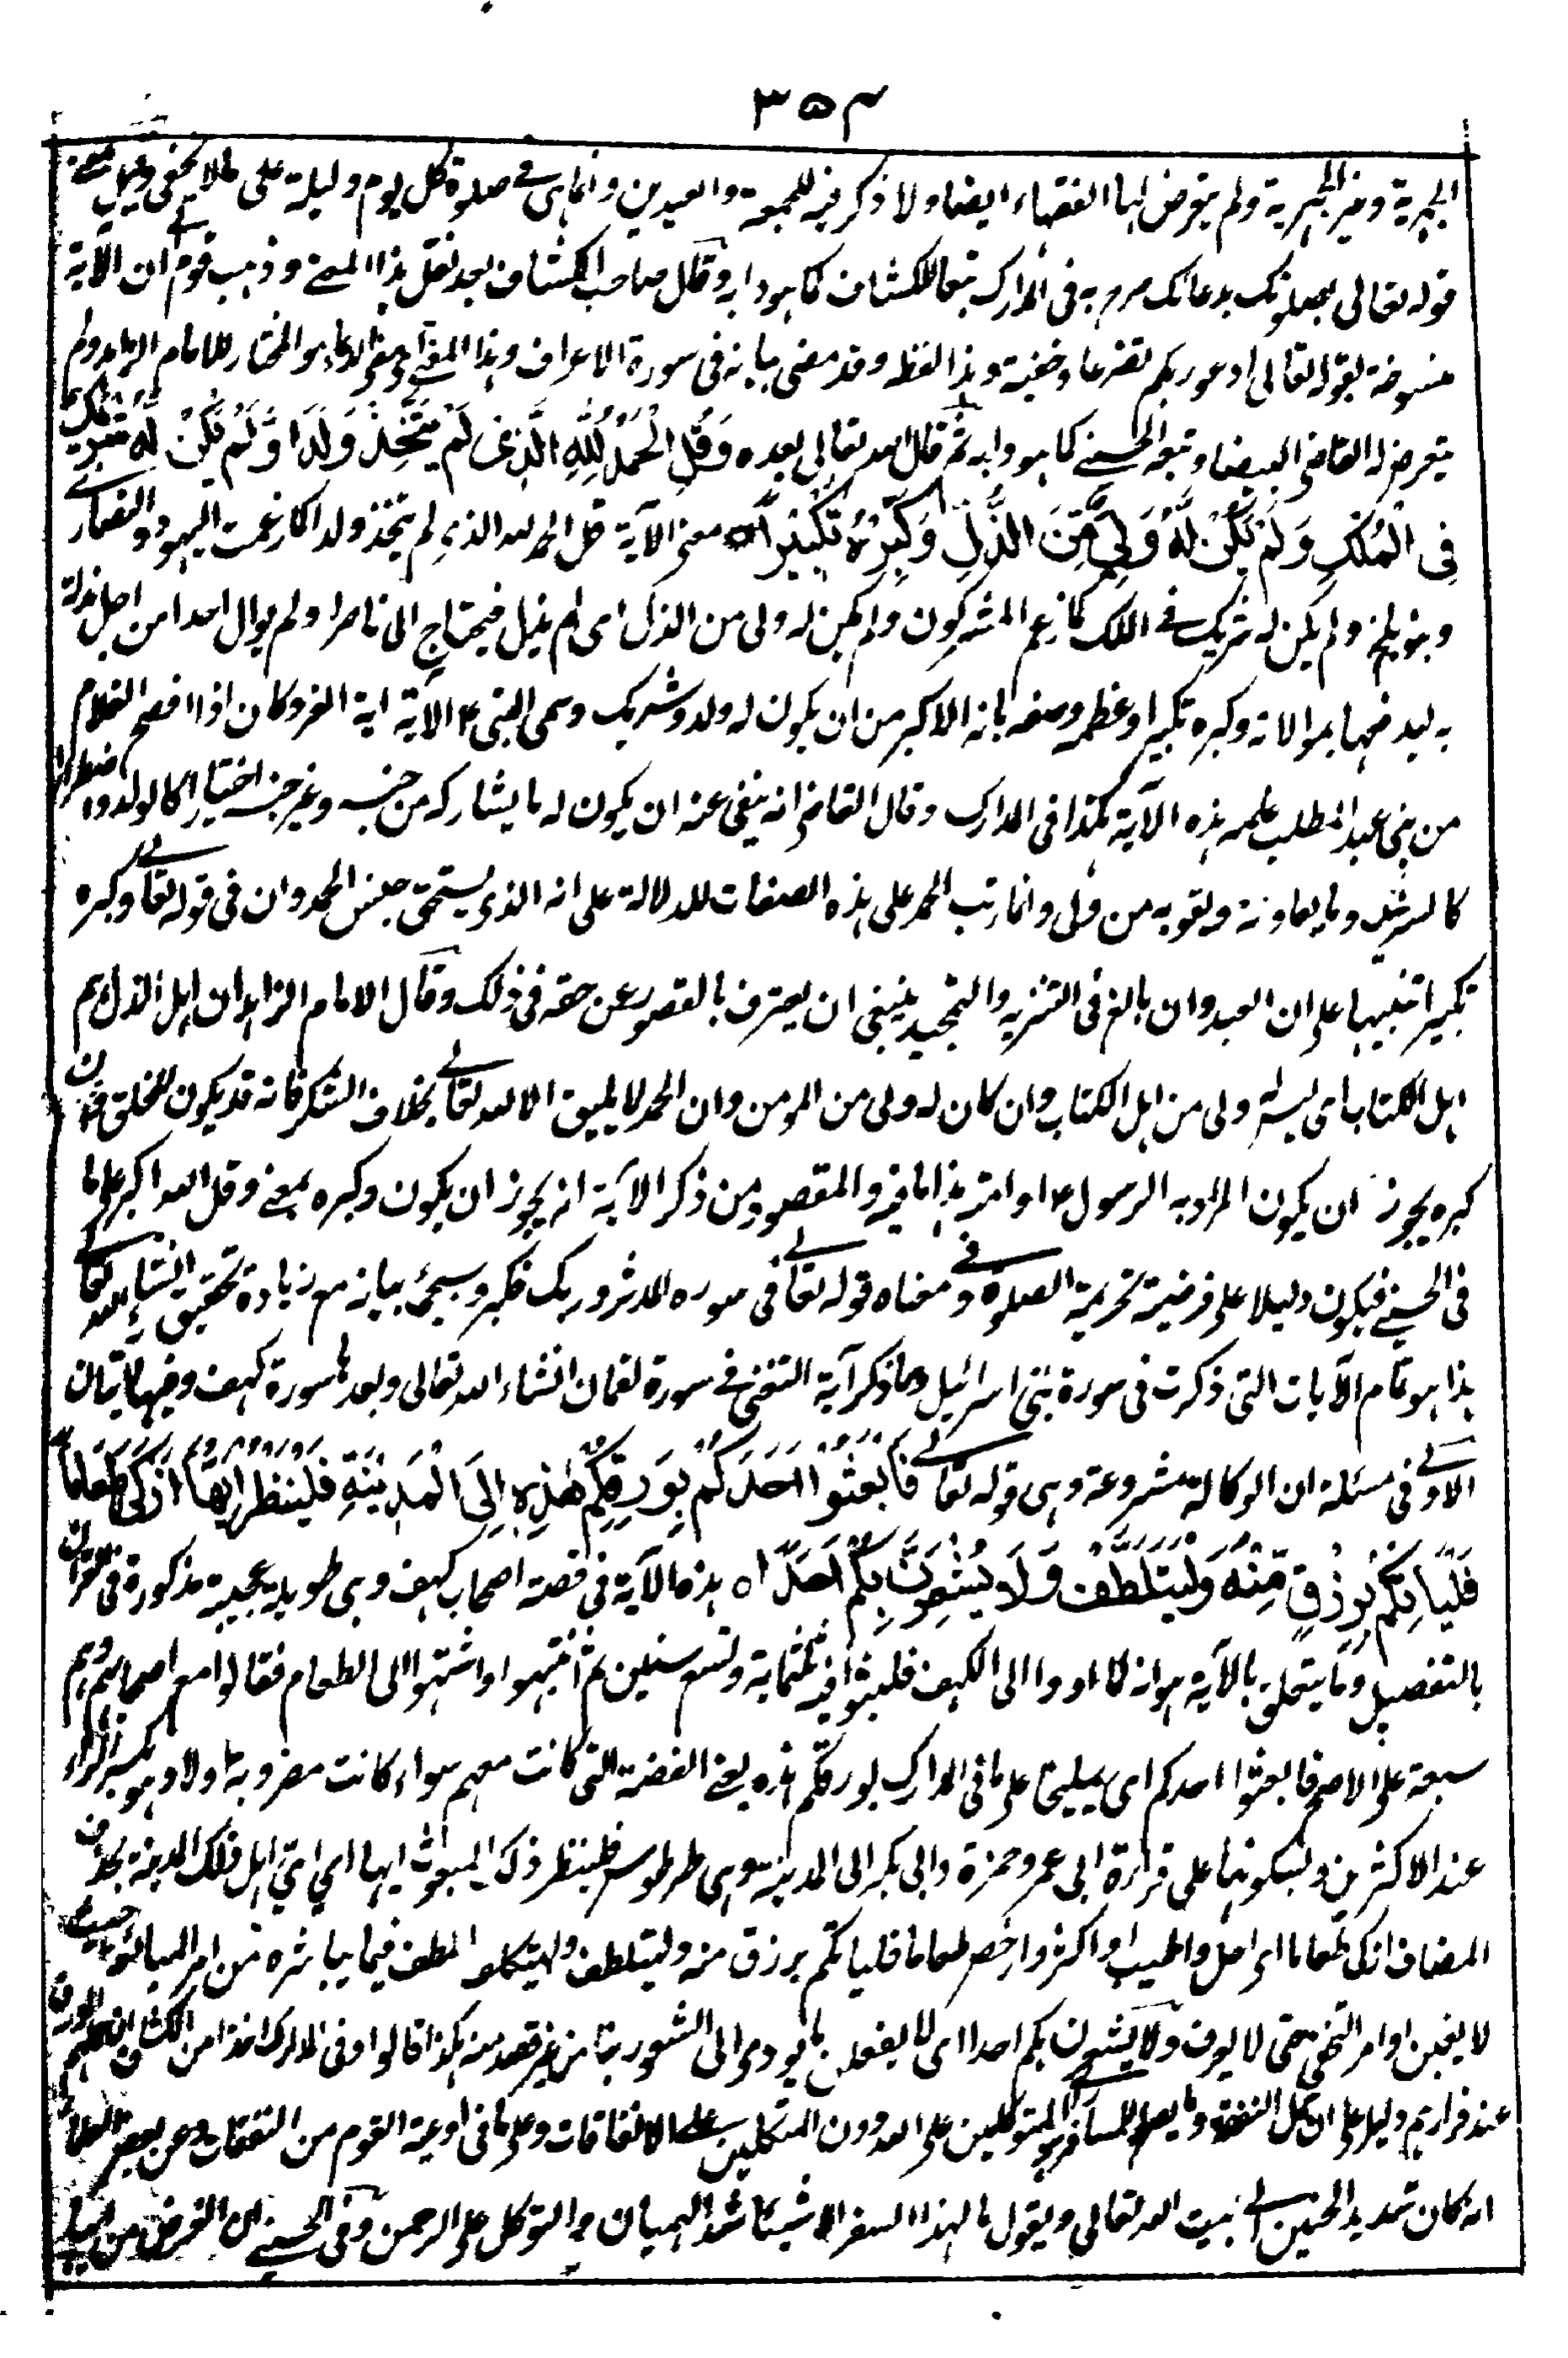 ٣٥٤
الجهرية وغير الجهرية ولم يتعرض لها الفقهاء ايضا ولا ذكر فيه للجمعة والعيدين وانما هى فى صلوة كل يوم وليلة على ما لا يخفى وقيل معنى
قوله تعالى بصلوتك بدعائك صرح به فى المدارك تبعا للكشاف كما هو دابه وقال صاحب الكشاف بعد نقل هذا المعنى وذهب قوم الى ان الآية
منسوخة بقوله تعالى ادعوا ربكم تضرعا وخفية وهذا لفظه وقد مضى بيانه فى سورة الاعراف وهذا المعنى الدعاء هو المختار للامام الزاهد ولم
يتعرض له القاضى البيضاوى وتبعه الحسينى كما هو دابه ثم قال الله تعالى بعده وَقُلِ الْحَمْدُ لِلّٰهِ الَّذِىْ لَمْ يَتَّخِذْ وَلَدًا وَّلَمْ يَكُنْ لَّهٗ شَرِيْكٌ
فِى الْمُلْكِ وَلَمْ يَكُنْ لَّهٗ وَلِىٌّ مِّنَ الذُّلِّ وَكَبِّرْهُ تَكْبِيْرًا ه معنى الآية قل الحمد لله الذى لم يتخذ ولدا كما زعمت اليهود والنصارى
وبنو مليح ولم يكن له شريك فى الملك كما زعم المشركون ولم يكن له ولى من الذل اى لم يذل فيحتاج الى ناصر او لم يوال احدا من اجل مذلة
به ليدفعها بموالاته وكبره تكبيرا وعظمه وصفه بانه الاكبر من ان يكون له ولد وشريك وسمى النبى ع الآية اية العز وكان اذا افصح الغلام
من بنى عبد المطلب علمه هذه الآية هكذا فى المدارك وقال القاضى انه ينفى عنه ان يكون له ما يشاركه من جنسه وغير جنسه اختيارا كالولد واضطرارا
كالشريك وما يعاونه ويقويه من ولى وانما رتب الحمد على هذه الصفات للدلالة على انه الذى يستحق جنس الحمد وان فى قوله تعالى وكبره
تكبيرا تنبيها على ان العبد وان بالغ فى التنزيه والتمجيد ينبغى ان يعترف بالقصور عن حقه فى ذلك وقال الامام الزاهد ان اهل الذل هم
اهل الكتاب اى ليس له ولى من اهل الكتاب وان كان له ولى من المومن وان الحمد لا يليق الا لله تعالى بخلاف الشكر فانه قد يكون للخلق وان
كبره يجوز ان يكون المراد به الرسول ع او امته هذا ما فيه والمقصود من ذكر الآية انه يجوز ان يكون وكبره بمعنى وقل الله اكبر على ما
فى الحسينى فيكون دليلا على فرضية تحريمة الصلوة وفى معناه قوله تعالى فى سوره المدثر وربك فكبر وسيجئ بيانه مع زيادة تحقيق انشاء الله تعالى
هذا هو تمام الآيات التى ذكرت فى سورة بنى اسرائيل وما ذكر آية التغنى فى سورة لقمان انشاء الله تعالى وبعدها سورة كهف وفيها آيتان
الاولى فى مسئلة ان الوكالة مشروعة وهى قوله تعالى فَابْعَثُوْا اَحَدَكُمْ بِوَرِقِكُمْ هٰذِهٖ اِلَى الْمَدِيْنَةِ فَلْيَنْظُرْ اَيُّهَا اَزْكٰى طَعَامًا
فَلْيَاْتِكُمْ بِرِزْقٍ مِّنْهُ وَلْيَتَلَطَّفْ وَلَا يُشْعِرَنَّ بِكُمْ اَحَدًا ه هذه الآية فى قصة اصحاب كهف وهى طويلة عجيبة مذكورة فى القرآن
بالتفصيل وما يتعلق بالآية هو انه لما اووا الى الكهف فلبثوا فيه ثلثماية وتسع سنين ثم انتبهوا واشتهوا الى الطعام فقالوا مع اصحابهم وهم
سبعة على الاصح فابعثوا احدكم اى يمليخا على ما فى المدارك بورقكم هذه يعنى الفضة التى كانت معهم سواء كانت مضروبة او لا وهو بكسر الراء
عند الاكثرين وبسكونها على قراءة ابى عمرو حمزة وابى بكر الى المدينة وهى طرطوس فلينظر ذلك المبعوث ايها اى اى اهل تلك المدينة بحذف
المضاف ازكى طعاما اى احل واطيب او اكثر وارخص طعاما فلياتكم برزق منه وليتلطف وليتكلف اللطف فيما يباشره من امر المبائعة حيث
لا يغبن او امر التخفى حتى لا يعرف ولا يشعرن بكم احدا اى لا يفعلن ما يودى الى الشعور بنا من غير قصد منه هكذا قالوا وفى المدارك اخذا من الكشاف ان حملهم الورق
عند فرارهم دليل على ان حمل النفقة وما يصلح للمسافر راى المتوكلين على الله دون المتكلين على الاتفاقات وعلى ما فى اوعية القوم من النفقات وعن بعض العلماء
انه كان شديد الحنين الى بيت الله تعالى ويقول ما لهذا السفر الا شيئان شد الهميان والتوكل على الرحمن وفى الحسينى ان الغرض من